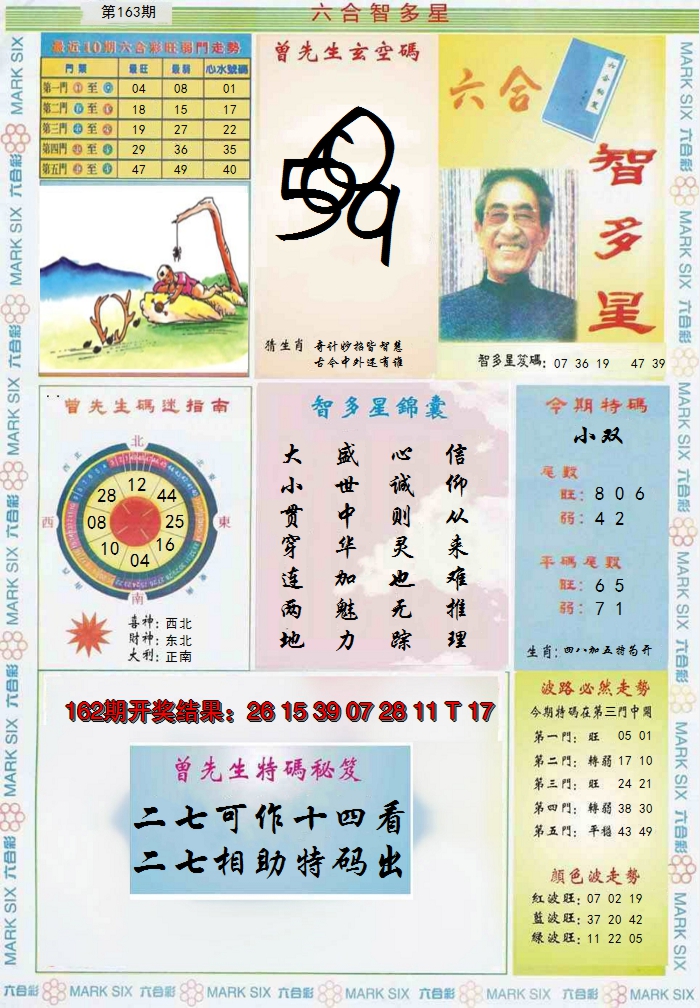 第163期
六合智多星
最近10期六合彩旺弱門走勢
門 類 最旺 最弱 心水號碼
第一門 至 04 08 01
第二門 至 18 15 17
第三門 至 19 27 22
第四門 至 29 36 35
第五門 至 47 49 40
曾先生玄空碼
猜生肖 奇计妙招皆智慧
古今中外还有谁
六合
智多星
智多星笈碼: 07 36 19 47 39
曾先生碼迷指南
北
西
東
南
12
44
25
16
04
10
08
28
喜神: 西北
財神: 东北
大利: 正南
智多星錦囊
大小贯穿连两地
盛世中华加魅力
心诚则灵也无踪
信仰从来难推理
今期特碼
小双
尾數
旺: 8 0 6
弱: 4 2
平碼尾數
旺: 6 5
弱: 7 1
生肖: 四八加五特苟开
162期开奖结果: 26 15 39 07 28 11 T 17
曾先生特碼秘笈
二七可作十四看
二七相助特码出
波路必然走勢
今期特碼在第三門中開
第一門: 旺 05 01
第二門: 轉弱 17 10
第三門: 旺 24 21
第四門: 轉弱 38 30
第五門: 平穩 43 49
顏色波走勢
紅波旺: 07 02 19
藍波旺: 37 20 42
綠波旺: 11 22 05
MARK SIX 六合彩